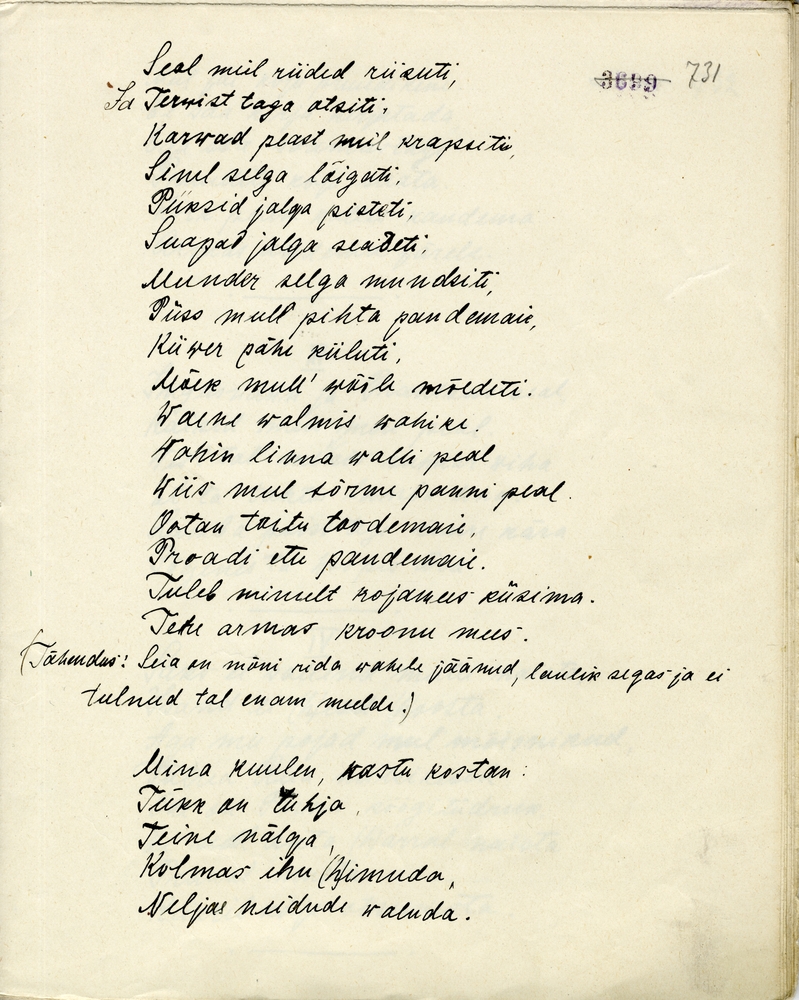 3699 731
Seal meil riided riisuti,
Ja Terwist taga otsiti,
Karwad peast meil krapsiti,
Sinel selga lõigati,
Püksid jalga pisteti,
Saapad jalga seadeti,
Munder selga mundsiti,
Püss mull pihta pandemaie,
Küwer pähe küluti,
Mõek mull' wööle mõedeti.
Waene walmis wahike.
Wahin linna walli peal
Wiis mul sõrme panni peal.
Ootan toitu toodemaie,
Proadi ette pandemaie.
Tuleb minult rojamees küsima.
Tere armas kroonu mees.
(Tähendus: Seia on mõni rida wahele jäänud, laulik segas ja ei
tulnud tal enam meelde.)
Mina kuulen, wastu kostan:
Tükk on tühja,
Teine nälga,
Kolmas ihu (h)imuda,
Neljas neidude waluda.